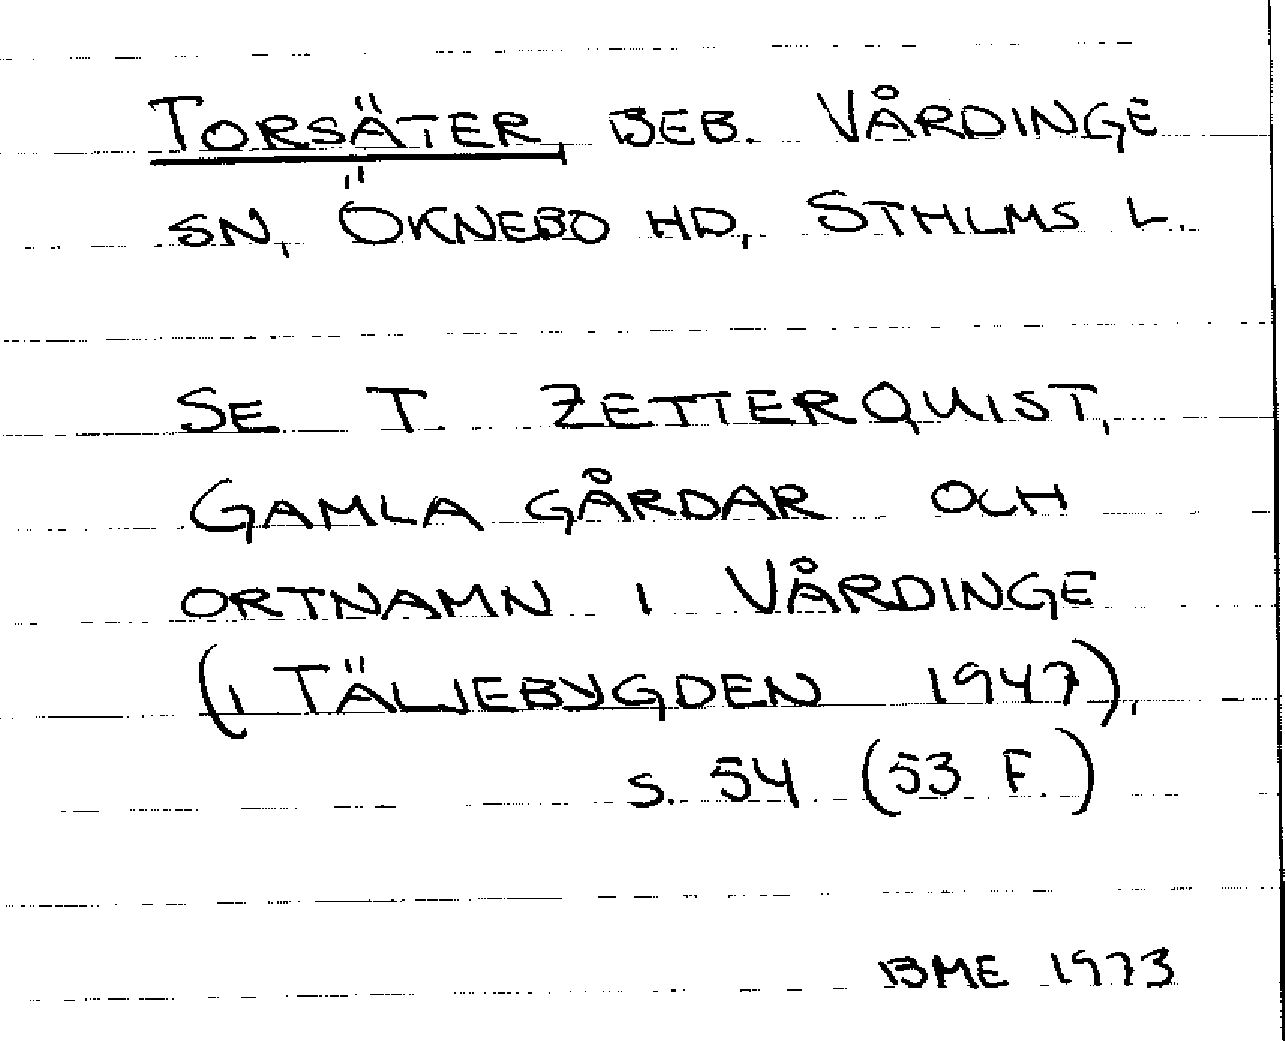 TORSÄTER, BEB. VÅRDINGE
SN, ÖKNEBO HD, STHLMS L.
SE T. ZETTERQUIST,
GAMLA GÅRDAR OCH
ORTNAMN I VÅRDINGE
(I TÄLJEBYGDEN 1947),
S. 54 (53 F.)
BME 1973